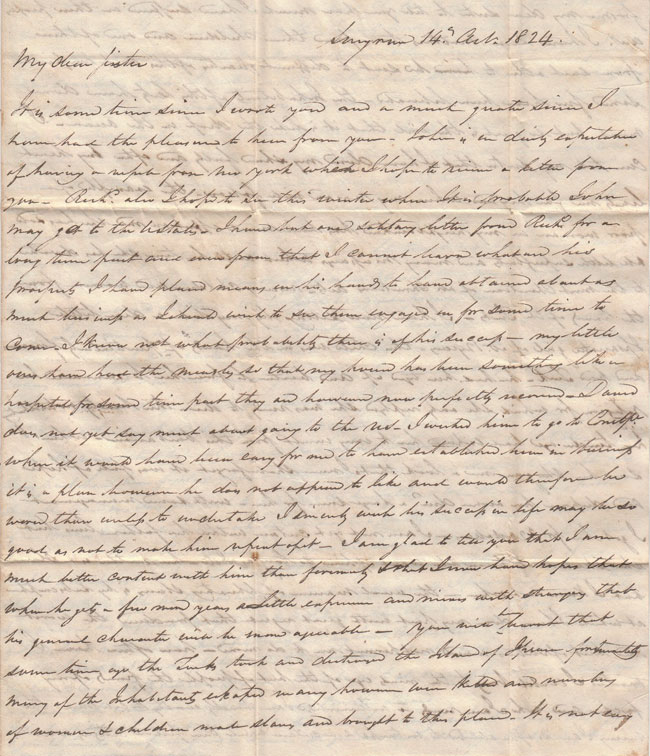 Smyrna 14th Oct. 1824.
My dear sister
It is some time since I wrote you and a much greater since I
have had the pleasure to hear from you. John is in daily expectation
of having a reply from New york when I hope to receive a letter from
you - Richd. also I hope to see this winter when It is probable John
may get to the UStates. I have but one solitary letter from Richd. for a
long time past and even from that I cannot learn what are his
prospects I have placed means in his hands to have obtained about as
much business as I should wish to see them engaged in for some time to
Come. I know not what probability there is of his success - my little
ones have had the measles so that my house has been something like a
hospital for some time past they are however now perfectly recovered - David
does not yet say much about going to the US. I wished him to go to Constple.
when it would have been easy for me to have established him in business
it is a plan however he does not appear to like and would therefore be
worse than useless to undertake I sincerely wish his success in life may be so
good as not to make him repent of it - I am glad to tell you that I am
much better content with him than formerly & that I now have hopes that
when he gets a few more years & a little experience and mixes with strangers that
his general character will be more agreeable - You will have learnt that
some time ago the Turks took and destroyed the Island of Ipsara fortunately
many of the Inhabitants escaped many however were killed and numbers
of women & children made slaves and brought to this place - It is not easy